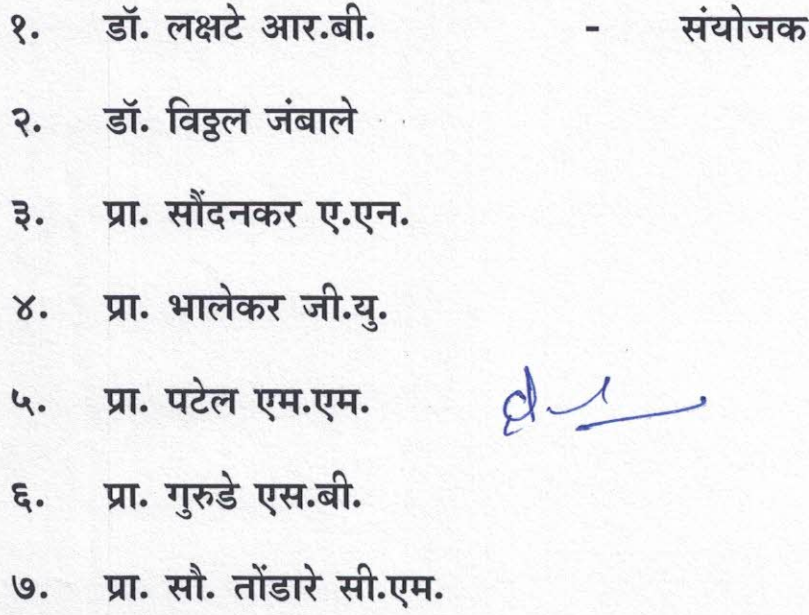 १. डॉ. लक्षटे आर.बी. - संयोजक
२. डॉ. विठ्ठल जंबाले
३. प्रा. सौंदनकर ए.एन.
४. प्रा. भालेकर जी.यु.
५. प्रा. पटेल एम.एम.
६. प्रा. गुरुडे एस.बी.
७. प्रा. सौ. तोंडारे सी.एम.